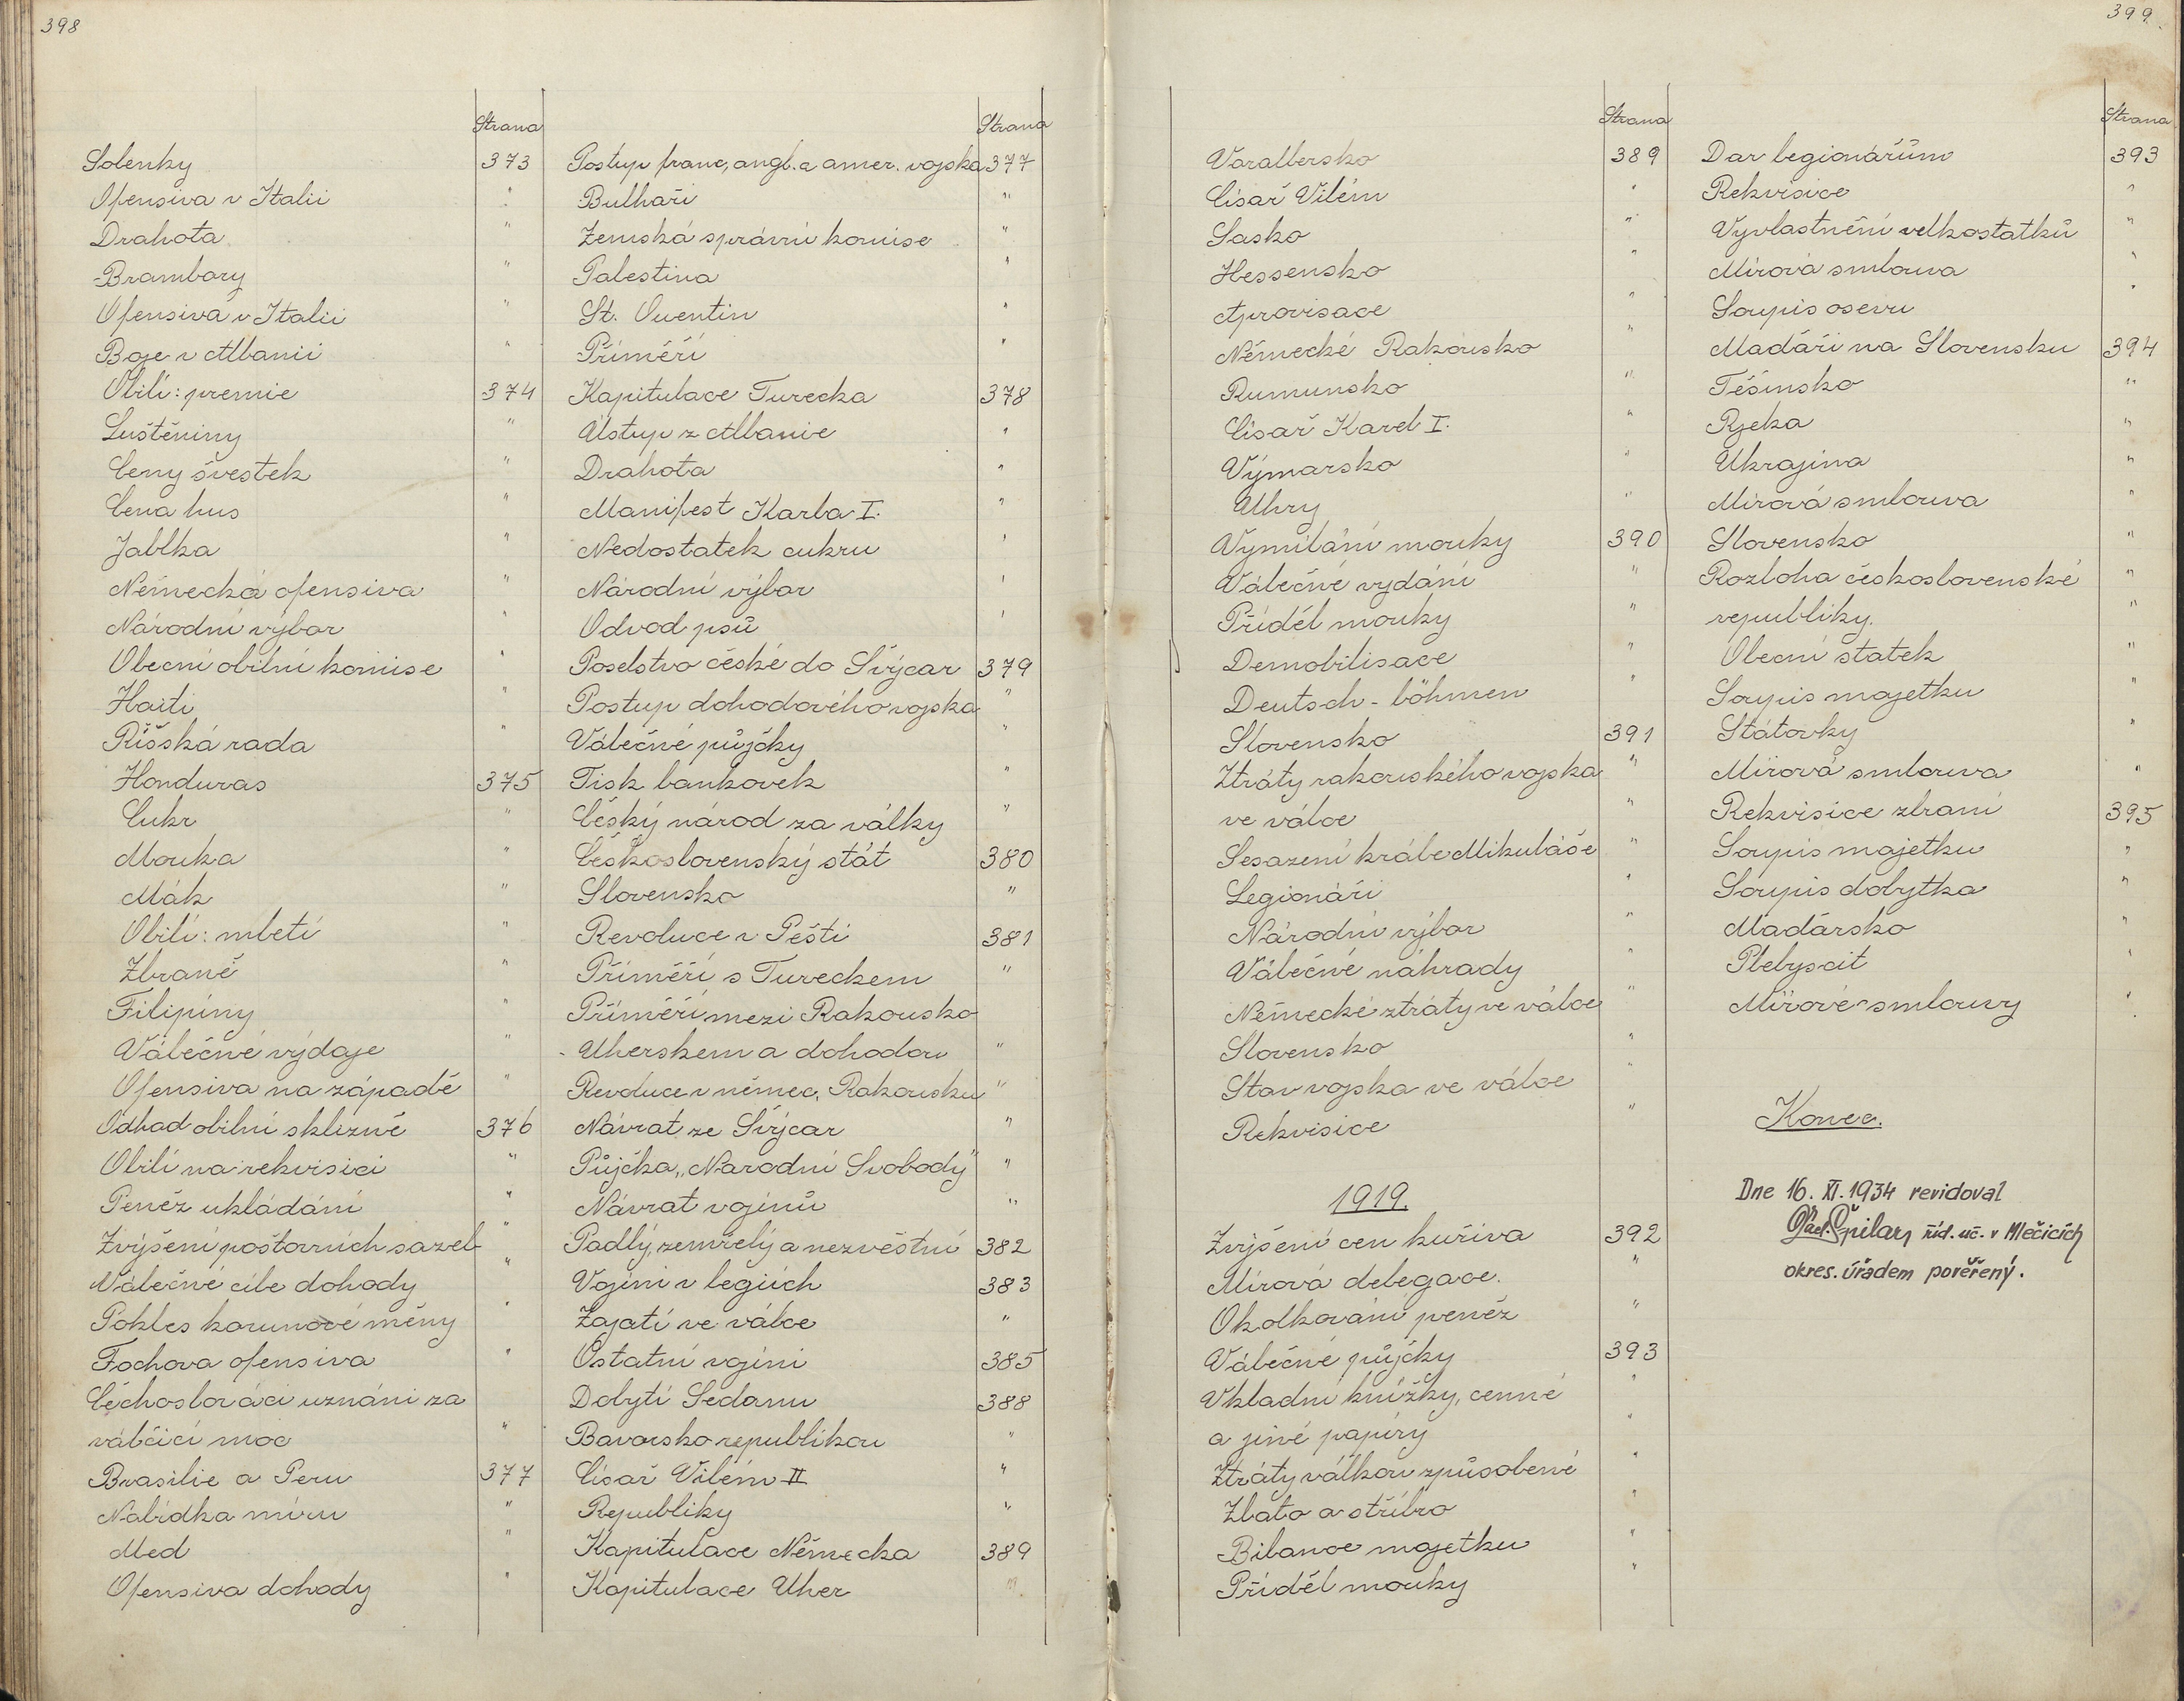 398
Strana
Solenky 373
Ofensiva v Italii "
Drahota "
Brambory "
Ofensiva v Italii "
Boje v Albanii "
Obilí: premie 374
Luštěniny "
Ceny švestek "
Cena hus "
Jablka "
Německá ofensiva "
Národní výbor "
Obecní obilní komise "
Haiti "
Říšská rada "
Honduras 375
Cukr "
Mouka "
Mák "
Obilí: mletí "
Zbraně "
Filipíny "
Válečné výdaje "
Ofensiva na západě "
Odhad obilní sklizně 376
Obilí na rekvisici "
Peněz ukládání "
Zvýšení poštovních sazeb "
Válečné cíle dohody "
Pokles korunové měny "
Fochova ofensiva "
Čechoslováci uznáni za
válčící moc "
Brasilie a Peru 377
Nabídka míru "
Med "
Ofensiva dohody "
Strana
Postup franc, angl. a amer. vojska 377
Bulhaři "
Zemská správní komise "
Palestina "
St. Quentin "
Příměří "
Kapitulace Turecka 378
Ústup z Albanie "
Drahota "
Manifest Karla I. "
Nedostatek cukru "
Národní výbor "
Odvod psů "
Poselstvo české do Švýcar 379
Postup dohodového vojska "
Válečné půjčky "
Tisk bankovek "
Český národ za války "
Československý stát 380
Slovensko "
Revoluce v Pešti 381
Příměří s Tureckem "
Příměří mezi Rakousko
- Uherskem a dohodou "
Revoluce v němec. Rakousku "
Návrat ze Švýcar "
Půjčka „Narodní Svobody" "
Návrat vojínů "
Padlý, zemřelý a nezvěstní 382
Vojíni v legiích 383
Zajatí ve válce "
Ostatní vojíni 385
Dobytí Sedanu 388
Bavorsko republikou "
Císař Vilém II "
Republiky "
Kapitulace Německa 389
Kapitulace Uher "
399.
Strana
Voralbersko 389
Císař Vilém "
Sasko "
Hessensko "
Aprovisace "
Německé Rakousko "
Rumunsko "
Císař Karel I. "
Výmarsko "
Uhry "
Vymílání mouky 390
Válečné vydání "
Příděl mouky "
Demobilisace "
Deutsch-böhmen "
Slovensko 391
Ztráty rakouského vojska "
ve válce "
Sesazení krále Mikuláše "
Legionáři "
Národní výbor "
Válečné náhrady "
Německé ztráty ve válce "
Slovensko "
Stav vojska ve válce "
Rekvisice "
1919.
Zvýšení cen kuřiva 392
Mírová delegace. "
Okolkování peněz "
Válečné půjčky 393
Vkladní knížky, cenné "
a jiné papíry "
Ztráty válkou způsobené "
Zlato a stříbro "
Bilance majetku "
Příděl mouky "
Strana
Dar legionářům 393
Rekvisice "
Vyvlastnění velkostatků "
Mírová smlouva "
Soupis osevu "
Maďáři na Slovensku 394
Těšínsko "
Rjeka "
Ukrajina "
Mírová smlouva "
Slovensko "
Rozloha československé "
republiky. "
Obecní statek "
Soupis majetku "
Státovky "
Mírová smlouva "
Rekvisice zbraní 395
Soupis majetku "
Soupis dobytka "
Maďarsko "
Plebyscit "
Mírové smlouvy "
Konec.
Dne 16. XI. 1934 revidoval
Václ. Špilar, říd. uč. v Mlečicích
okres. úřadem pověřený.